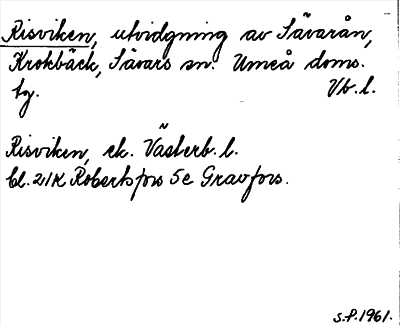 Risviken, utvidgning av Sävarån,
Krokbäck, Sävars sn. Umeå doms.
tg. Vb. l.
Risviken, ek. Västerb. l.
bl. 21K Robertsfors 5c Gravfors.
S.P. 1961.